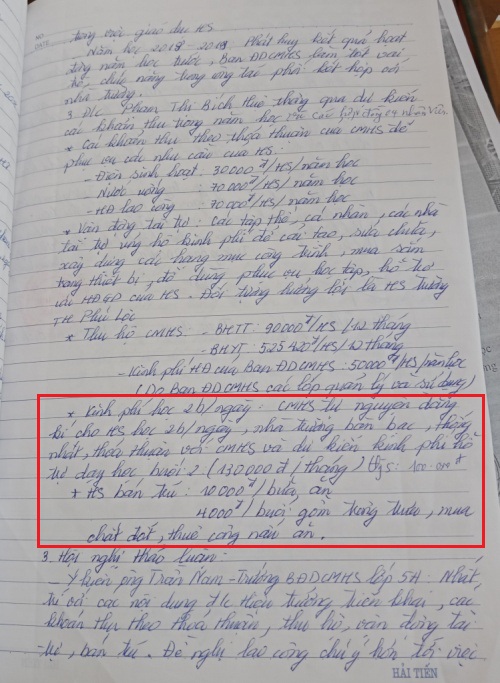 trong việc giáo dục HS
Năm học 2018-2019 Phát huy kết quả hoạt
động năm học trước, Ban ĐDCMHS làm tốt vai
trò, chức năng trong công tác phối kết hợp với
nhà trường.
3. Đ/c Phạm Thị Bích Huê thông qua dự kiến
các khoản thu trong năm học
* Các khoản thu theo thỏa thuận của CMHS để
phục vụ các nhu cầu của HS:
- Điện sinh hoạt: 30000đ/HS/năm học
Nước uống : 70000đ/HS/năm học
- HĐ lao công : 70000đ/HS/năm học
* Vận động tài trợ: Các tập thể, cá nhân, các nhà
tài trợ ủng hộ kinh phí để cải tạo, sửa chữa,
xây dựng các hạng mục công trình, mua sắm
trang thiết bị, đồ dùng phục vụ học tập, hỗ trợ
các HĐGD của HS. Đối tượng hưởng lợi là HS trường
TH Phú Lộc
* Thu hộ CMHS: - BHTT: 90000đ/HS/12 tháng
- BHYT: 525420đ/HS/12 tháng
- Kinh phí HĐ của Ban ĐDCMHS: 50000đ/HS/năm học
(Do Ban ĐDCMHS các lớp quản lý và sử dụng)
* Kinh phí học 2b/ngày: CMHS tự nguyện đăng
kí cho HS học 2b/ngày, nhà trường bàn bạc, thống
nhất, thỏa thuận với CMHS và dự kiến kinh phí hỗ
trợ dạy học buổi 2 (130.000đ/tháng) 100.000đ
+ HS bán trú: 10000đ/bữa ăn
4000đ/buổi gồm trông trưa, mua
chất đốt, thuê công nấu ăn.
3. Hội nghị thảo luận:
- Ý kiến ông Trần Nam - Trưởng BĐDCMHS lớp 5A: Nhất
trí với các nội dung đ/c Hiệu trưởng triển khai, các
khoản thu theo thỏa thuận, thu hộ, vận động tài
trợ, bán trú. Đề nghị lao công chú ý hơn tới việc
HẢI TIẾN